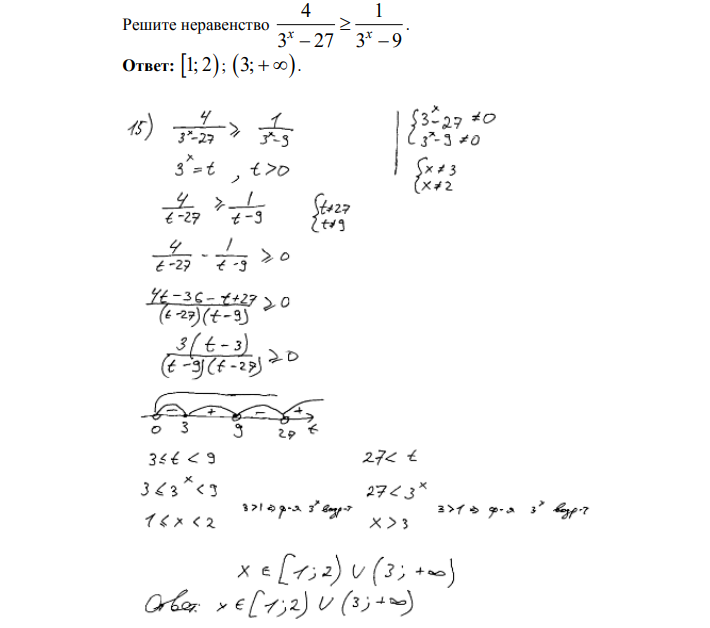 Решите неравенство 4/(3^x − 27) ≥ 1/(3^x − 9).
Ответ: [1; 2); (3; +∞).
15) 4/(3^x−27) ≥ 1/(3^x−9)
{3^x−27 ≠0
{3^x−9 ≠0
3^x = t , t>0
{x ≠ 3
{x ≠ 2
4/(t−27) ≥ 1/(t−9)
{t≠27
{t≠9
4/(t−27) − 1/(t−9) ≥ 0
(4t−36−t+27)/((t−27)(t−9)) ≥ 0
3(t−3)/((t−9)(t−27)) ≥ 0
− + − +
0 3 9 27 t
3≤t<9
27< t
3≤3^x<9 3>1 ⇒ ф-я 3^x возр-т
27<3^x 3>1 ⇒ ф-я 3^x возр-т
1≤x<2
x>3
x ∈ [1; 2) ∪ (3; +∞)
Ответ: x ∈ [1; 2) ∪ (3; +∞)